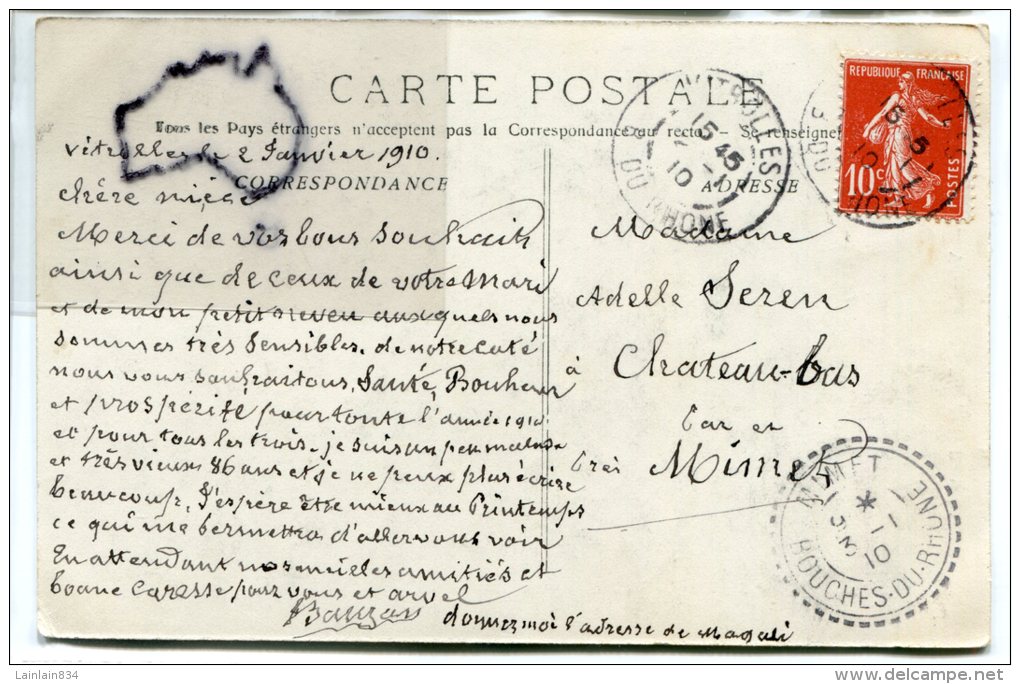 CARTE POSTALE
Tous les Pays étrangers n'acceptent pas la Correspondance au recto — Se renseigner
CORRESPONDANCE
ADRESSE
Vitrolles le 2 Janvier 1910.
chére nièce
Merci de vos bons Souhaits
ainsi que de ceux de votre Mari
et de mon petit neveu aux quels nous
sommes très Sensibles. de notre Coté
nous vous souhaitons, Santé, Bonheur
et prospérité pour toute l'année 1910
et pour tous les trois. je suis un peu malade
et très vieux 86 ans et je ne peux plus écrire
beaucoup, J'espère être mieux au Printemps
ce qui me permettra d'aller vous voir
En attendant nos meilleures amitiés et
bonne Caresse pour vous et
donnez moi l'adresse de Magali
Madame
Adelle Seren
à Chateau-bas
Par en
Près Mimet
REPUBLIQUE FRANÇAISE
10c
POSTES
VITROLLES
15 45
5-1
10
B. DU RHONE
MIMET
*
5-1
10
BOUCHES-DU-RHONE
Lainlain834
delcampe.net